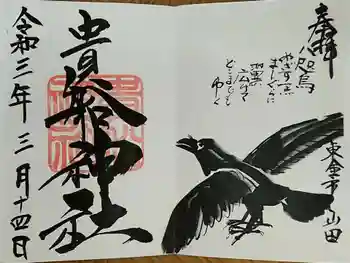 奉拝
八咫烏
やさすへ
ましぐらに
翼
広げて
どこまでも
ゆく
東金市山田
貴船神社
令和三年三月十四日